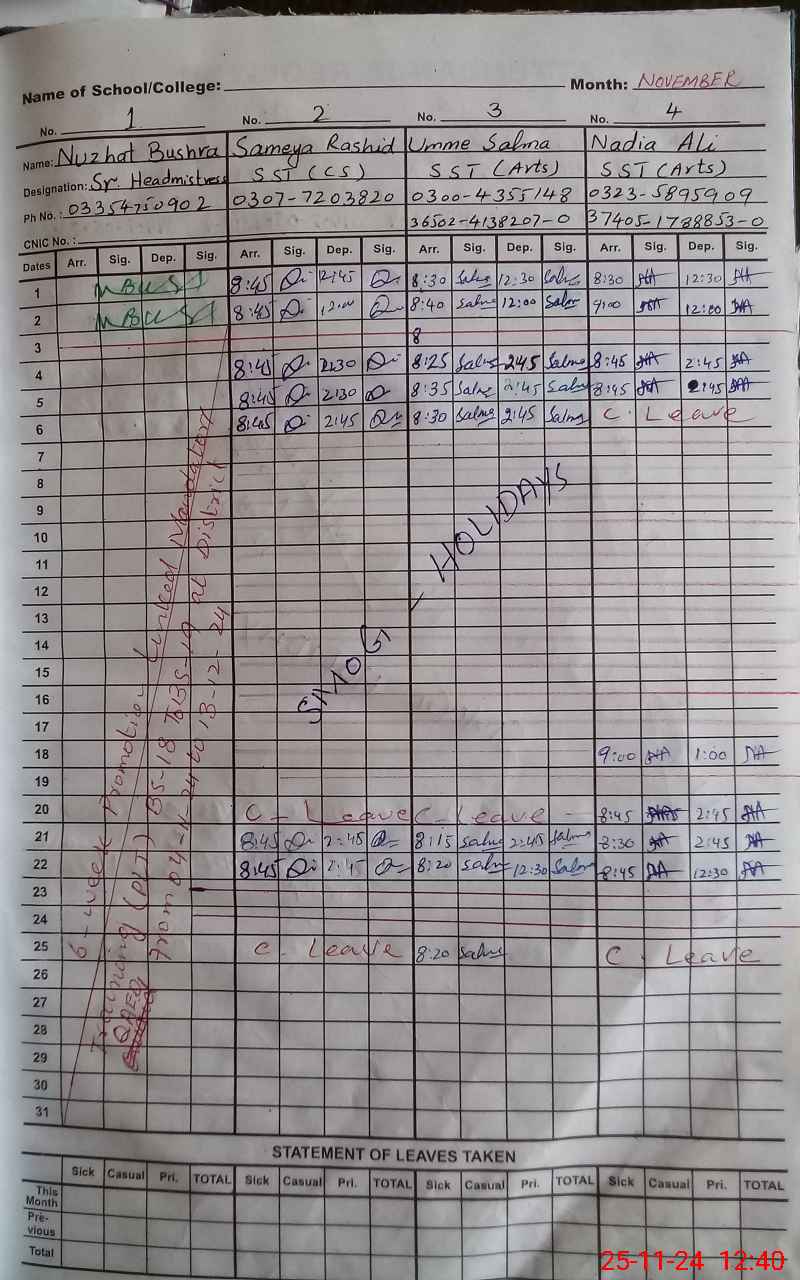 Name of School/College: Month: NOVEMBER
No. 1 No. 2 No. 3 No. 4
Name: Nuzhat Bushra Sameya Rashid Umme Salma Nadia Ali
Designation: Sr. Headmistress SST (CS) SST (Arts) SST (Arts)
Ph No.: 03354750902 0307-7203820 0300-4355148 0323-5895909
CNIC No.: 36502-4138207-0 37405-1788853-0
Dates Arr. Sig. Dep. Sig. Arr. Sig. Dep. Sig. Arr. Sig. Dep. Sig. Arr. Sig. Dep. Sig.
1 8:45 12:45 8:30 Salma 12:30 Salma 8:30 12:30
2 8:45 12:00 8:40 Salma 12:00 Salma 9:00 12:00
3 8
4 8:45 2:30 8:25 Salma 2:45 Salma 8:45 2:45
5 8:45 2:30 8:35 Salma 2:45 Salma 8:45 2:45
6 8:45 2:45 8:30 Salma 2:45 Salma C. Leave
7
8
9
10
11
12
13
14
15
16
17
18 9:00 1:00
19
20 C - Leave C - Leave - 8:45 2:45
21 8:45 2:45 8:15 Salma 2:45 Salma 8:30 2:45
22 8:45 2:45 8:20 Salma 12:30 Salma 8:45 12:30
23
24
25 C. Leave 8:20 Salma C. Leave
26
27
28
29
30
31
SMOG - HOLIDAYS
6-week Promotion Linked Mandatory
Training (PLT) BS-18 To BS-19 at District
QAED From 04-11-24 to 13-12-24
STATEMENT OF LEAVES TAKEN
Sick Casual Pri. TOTAL Sick Casual Pri. TOTAL Sick Casual Pri. TOTAL Sick Casual Pri. TOTAL
This Month
Pre-vious
Total
25-11-24 12:40